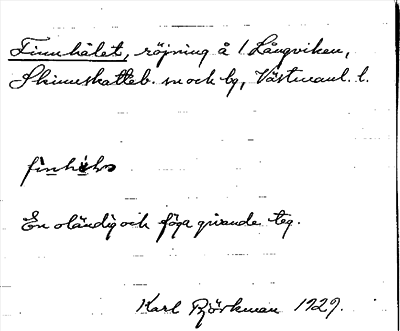 Finnhålet, röjning å l. Långviken,
Skinnskatteb. sn och bg, Västmanl. l.
En oländig och föga givande teg.
Karl Björkman 1929.